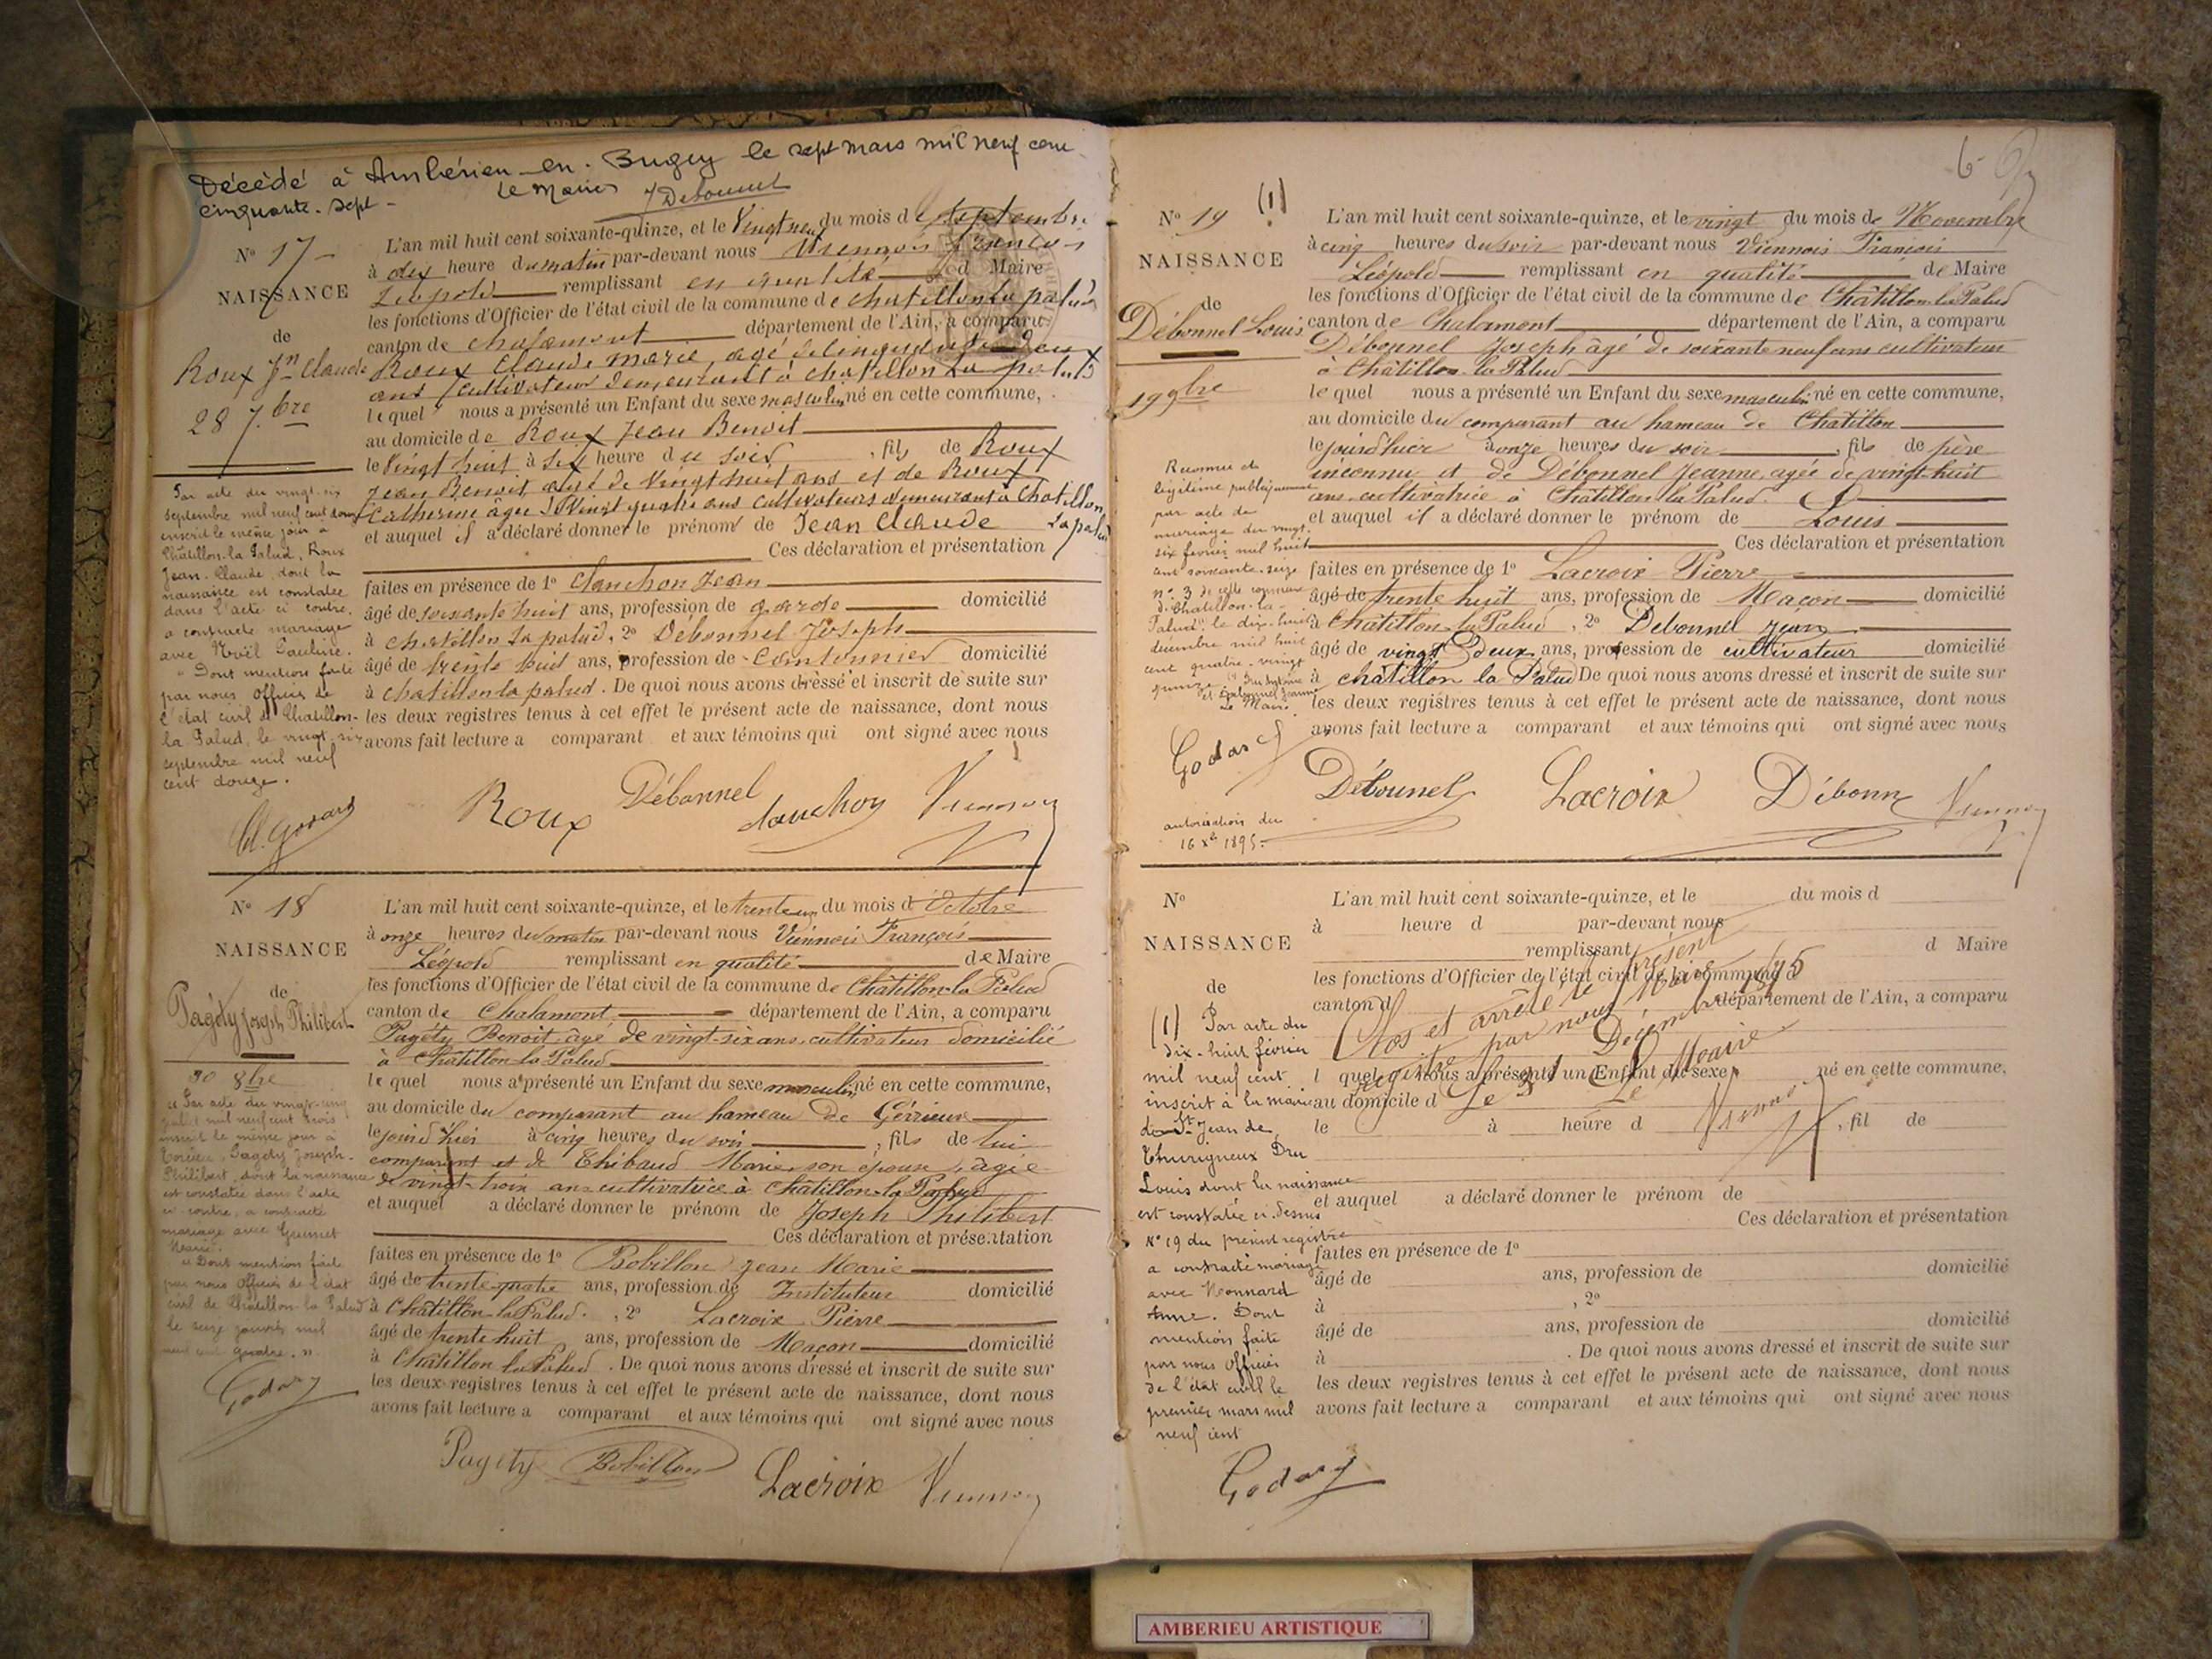 Décédé à Ambérieu-en-Bugey le sept mars mil neuf cent
cinquante-sept -
Le Maire
Débonnel
N° 17
NAISSANCE
de
Roux Jn Claude
28 7.bre
L'an mil huit cent soixante-quinze, et le Vingt neuf du mois de septembre
à dix heure du matin par-devant nous Viennois François
Léopold remplissant en qualité de Maire
les fonctions d'Officier de l'état civil de la commune de chatillon la palud
canton de chalamont département de l'Ain, a comparu
Roux Claude Marie agé de cinquante deux
ans cultivateur demeurant à chatillon la palud
lequel nous a présenté un Enfant du sexe masculin né en cette commune,
au domicile de Roux Jean Benoit
le Vingt huit à six heure du soir, fils de Roux
Jean Benoit agé de Vingt huit ans et de Roux
Catherine âgée de Vingt quatre ans cultivateurs demeurant à Chatillon
la palud
et auquel il a déclaré donner le prénom de Jean Claude
Ces déclaration et présentation
faites en présence de 1° Clanchon Jean
âgé de soixante huit ans, profession de garde domicilié
à chatillon la palud, 2° Débonnel Joseph
âgé de trente huit ans, profession de Cantonnier domicilié
à chatillon la palud. De quoi nous avons dressé et inscrit de suite sur
les deux registres tenus à cet effet le présent acte de naissance, dont nous
avons fait lecture a comparant et aux témoins qui ont signé avec nous
Par acte du vingt-six
septembre mil neuf cent douze
inscrit le même jour à
Châtillon-la Palud, Roux
Jean-Claude, dont la
naissance est constatée
dans l'acte ci contre,
a contracté mariage
avec Noël Pauline.
" Dont mention faite
par nous Officier de
l'état civil de Chatillon-
la Palud, le vingt-six
septembre mil neuf
cent douze.
Cl. Godard
Roux Débonnel Clanchon Viennois
N° 18
NAISSANCE
de
Pagety Joseph Philibert
30 8bre
L'an mil huit cent soixante-quinze, et le trente un du mois d'Octobre
à onze heures du matin par-devant nous Viennois François
Léopold remplissant en qualité de Maire
les fonctions d'Officier de l'état civil de la commune de Châtillon-la Palud
canton de Chalamont département de l'Ain, a comparu
Pagety Benoit âgé de vingt-six ans, cultivateur domicilié
à Châtillon-la Palud
lequel nous a présenté un Enfant du sexe masculin né en cette commune,
au domicile du comparant au hameau de Gévrieux
le jour d'hier à cinq heures du soir, fils de lui
comparant et de Thibaud Marie, son épouse, agée
de vingt-trois ans cultivatrice à Châtillon-la Palud
et auquel a déclaré donner le prénom de Joseph Philibert
Ces déclaration et présentation
faites en présence de 1° Bobillon Jean Marie
âgé de trente-quatre ans, profession de Instituteur domicilié
à Châtillon-la Palud, 2° Lacroix Pierre
âgé de trente huit ans, profession de Maçon domicilié
à Châtillon la Palud. De quoi nous avons dressé et inscrit de suite sur
les deux registres tenus à cet effet le présent acte de naissance, dont nous
avons fait lecture a comparant et aux témoins qui ont signé avec nous
" Par acte du vingt-cinq
mil neuf cent trois
inscrit le même jour à
Pagety Joseph-
Philibert, dont la naissance
est constatée dans l'acte
ci-contre, a contracté
mariage avec Guimet
Marie.
" Dont mention faite
par nous Officier de l'état
civil de Châtillon-la Palud
le seize janvier mil
neuf cent quatre. "
Godard
Pagety Bobillon Lacroix Viennois
6
N° 19 (1)
NAISSANCE
de
Débonnel Louis
19 9bre
L'an mil huit cent soixante-quinze, et le vingt du mois de Novembre
à cinq heures du soir par-devant nous Viennois François
Léopold remplissant en qualité de Maire
les fonctions d'Officier de l'état civil de la commune de Châtillon-la Palud
canton de Chalamont département de l'Ain, a comparu
Débonnel Joseph âgé de soixante neuf ans cultivateur
à Châtillon-la Palud
lequel nous a présenté un Enfant du sexe masculin né en cette commune,
au domicile du comparant au hameau de Châtillon
le jour d'hier à onze heures du soir, fils de père
inconnu et de Débonnel Jeanne, agée de vingt-huit
ans cultivatrice à Châtillon la Palud
et auquel il a déclaré donner le prénom de Louis
Ces déclaration et présentation
faites en présence de 1° Lacroix Pierre
âgé de trente huit ans, profession de Maçon domicilié
à Châtillon-la Palud, 2° Débonnel Jean
âgé de vingt deux ans, profession de cultivateur domicilié
à châtillon la Palud De quoi nous avons dressé et inscrit de suite sur
les deux registres tenus à cet effet le présent acte de naissance, dont nous
avons fait lecture a comparant et aux témoins qui ont signé avec nous
Reconnu et
légitimé publiquement
par acte de
mariage du vingt-
six février mil huit
cent soixante-seize
n° 3 de cette commune
de Chatillon-la-
Palud le dix-huit
décembre mil huit
cent quatre-vingt
quinze
et Débonnel Jeanne
Le Maire
Godard
autorisation du
16 Xbre 1895.
Débonnel Lacroix Débonne Viennois
N°
NAISSANCE
de
L'an mil huit cent soixante-quinze, et le du mois d
à heure d par-devant nous
remplissant d Maire
les fonctions d'Officier de l'état civil de la commune d
canton d département de l'Ain, a comparu
Clos et arrêté le présent
registre par nous Maire
Le 31 Décembre 1875
Le Maire
Viennois
l quel nous a présenté un Enfant du sexe né en cette commune,
au domicile d
le à heure d , fil de
et auquel a déclaré donner le prénom de
Ces déclaration et présentation
faites en présence de 1°
âgé de ans, profession de domicilié
à , 2°
âgé de ans, profession de domicilié
à . De quoi nous avons dressé et inscrit de suite sur
les deux registres tenus à cet effet le présent acte de naissance, dont nous
avons fait lecture a comparant et aux témoins qui ont signé avec nous
(1) Par acte du
dix-huit février
mil neuf cent
inscrit à la mairie
de St Jean de
Thurigneux Dru
Louis dont la naissance
est constatée ci-dessus
N° 19 du présent registre
a contracté mariage
avec Monnard
Anne. Dont
mention faite
par nous Officier
de l'état civil le
premier mars mil
neuf cent
Godard
AMBERIEU ARTISTIQUE